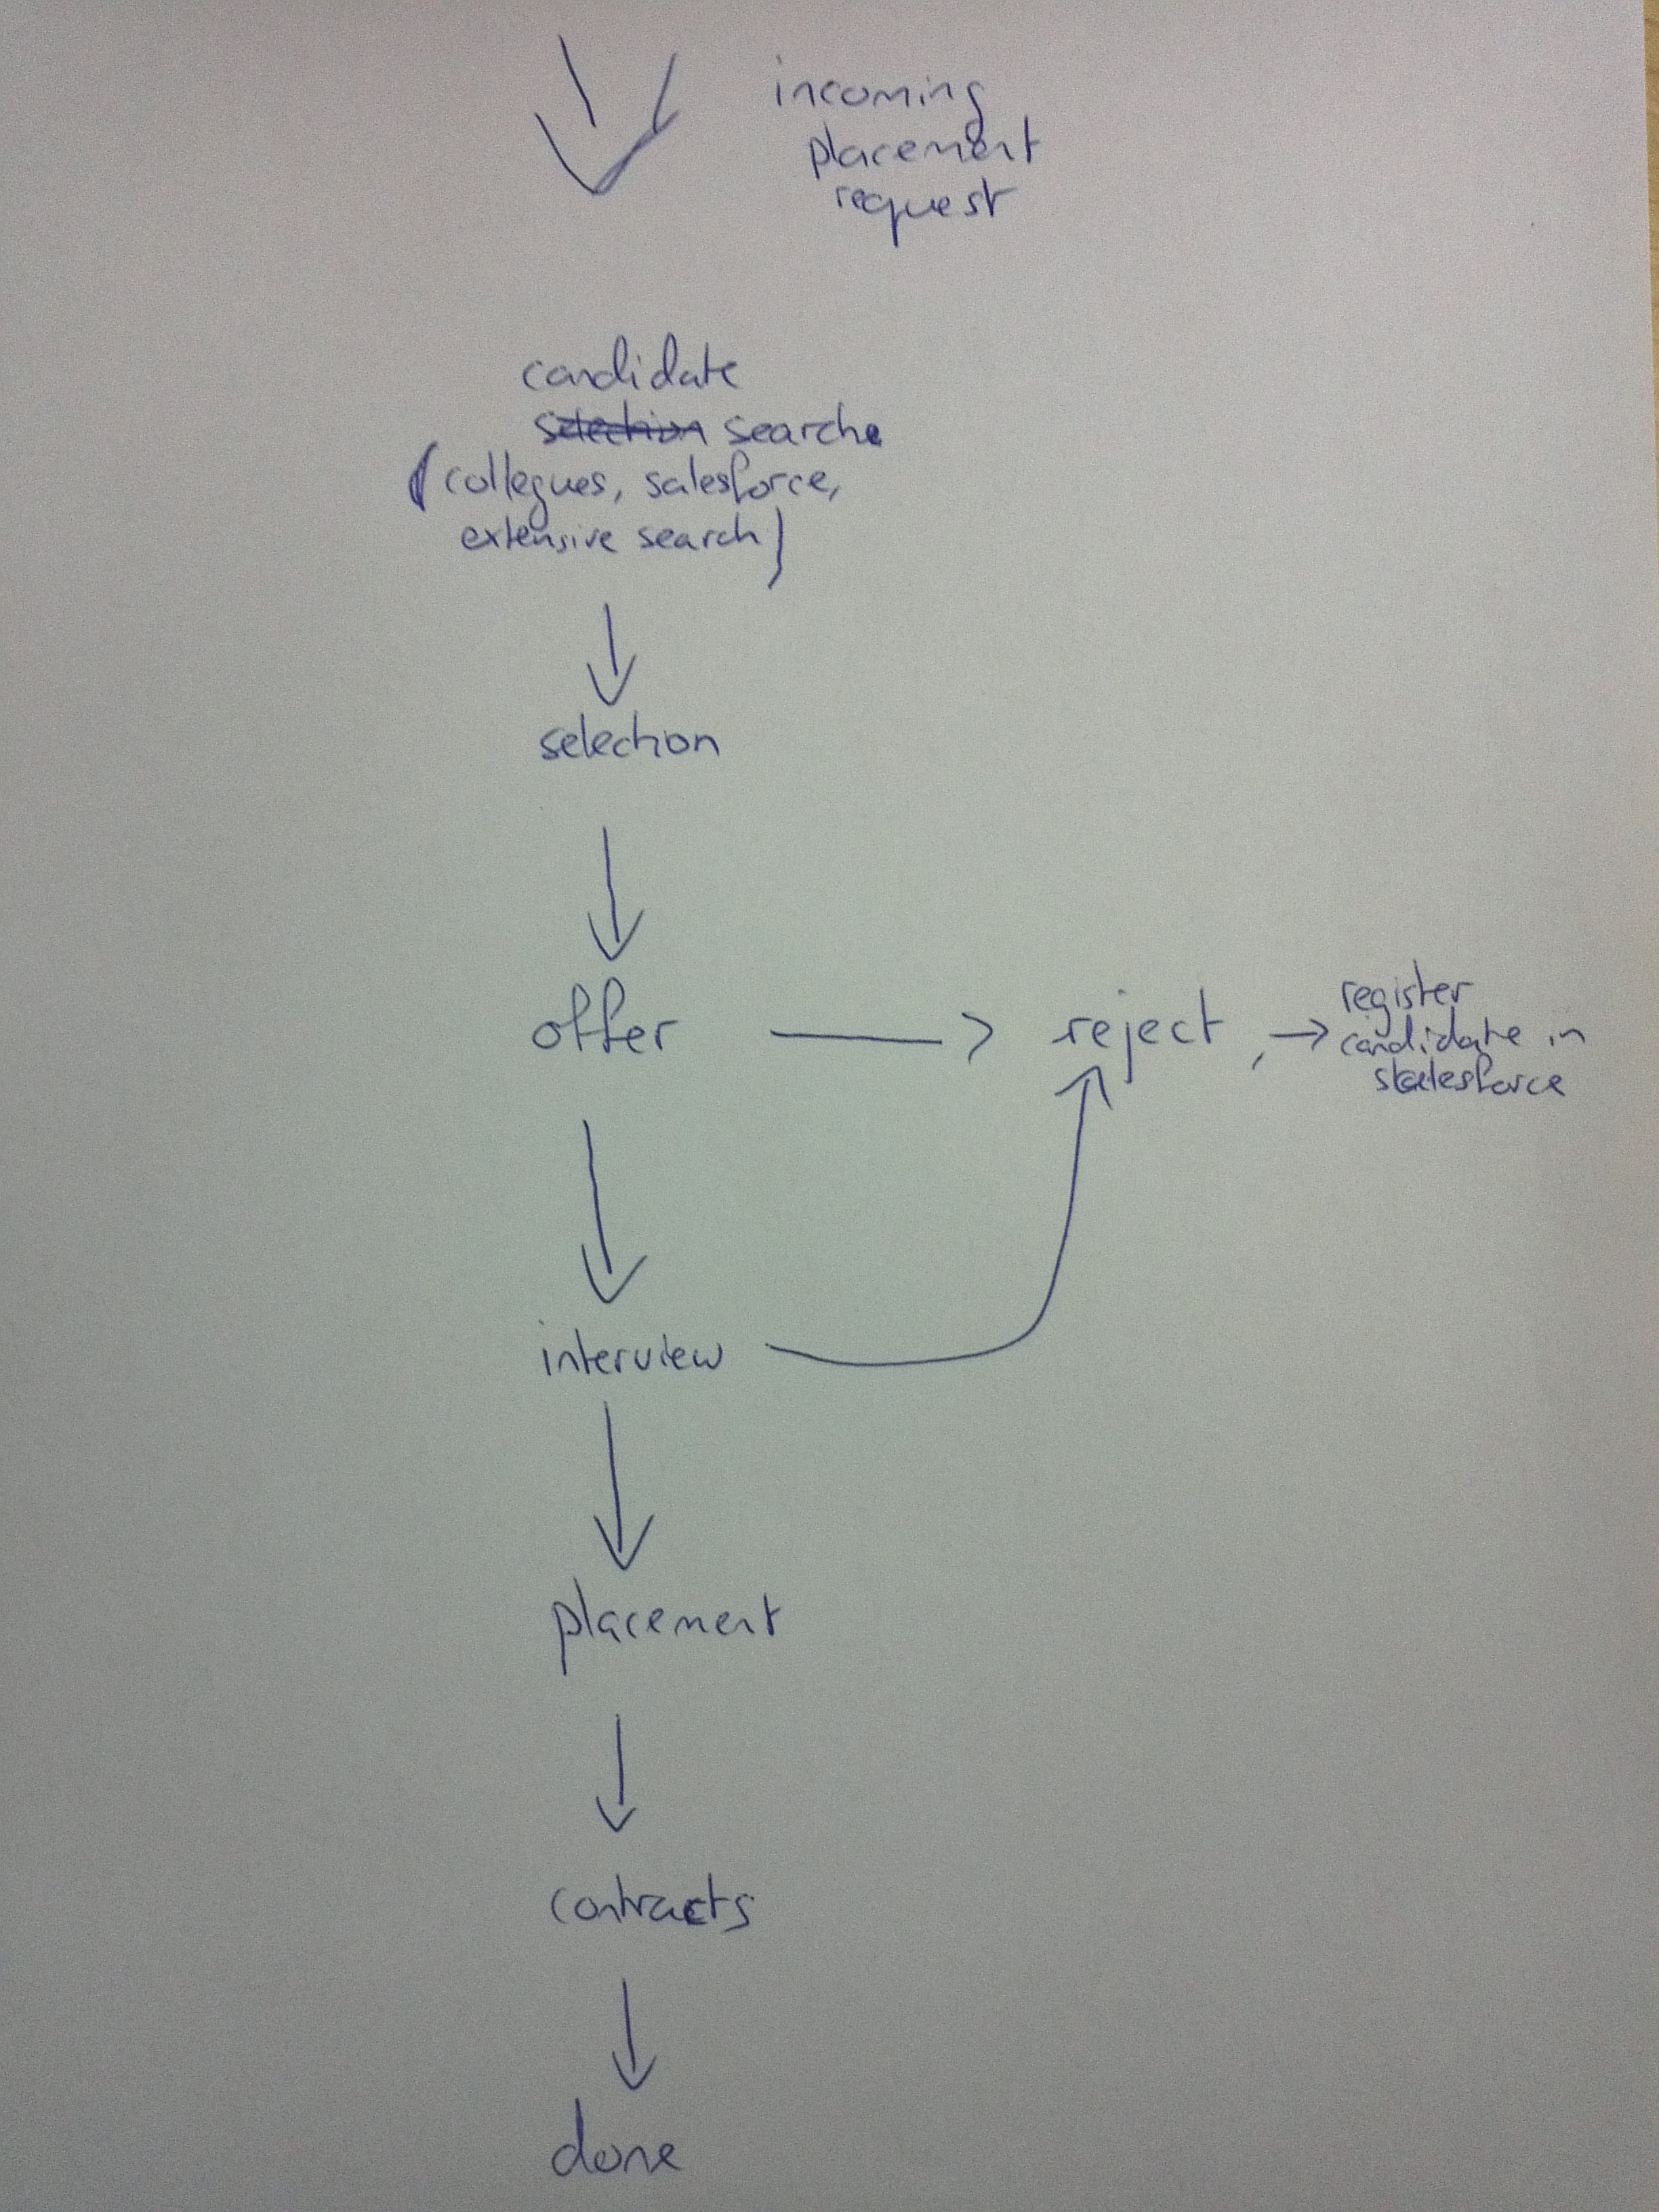 incoming
placement
request
candidate
selection searche
(collegues, salesforce,
extensive search)
selection
offer
reject,
register
candidate in
salesforce
interview
placement
contracts
done